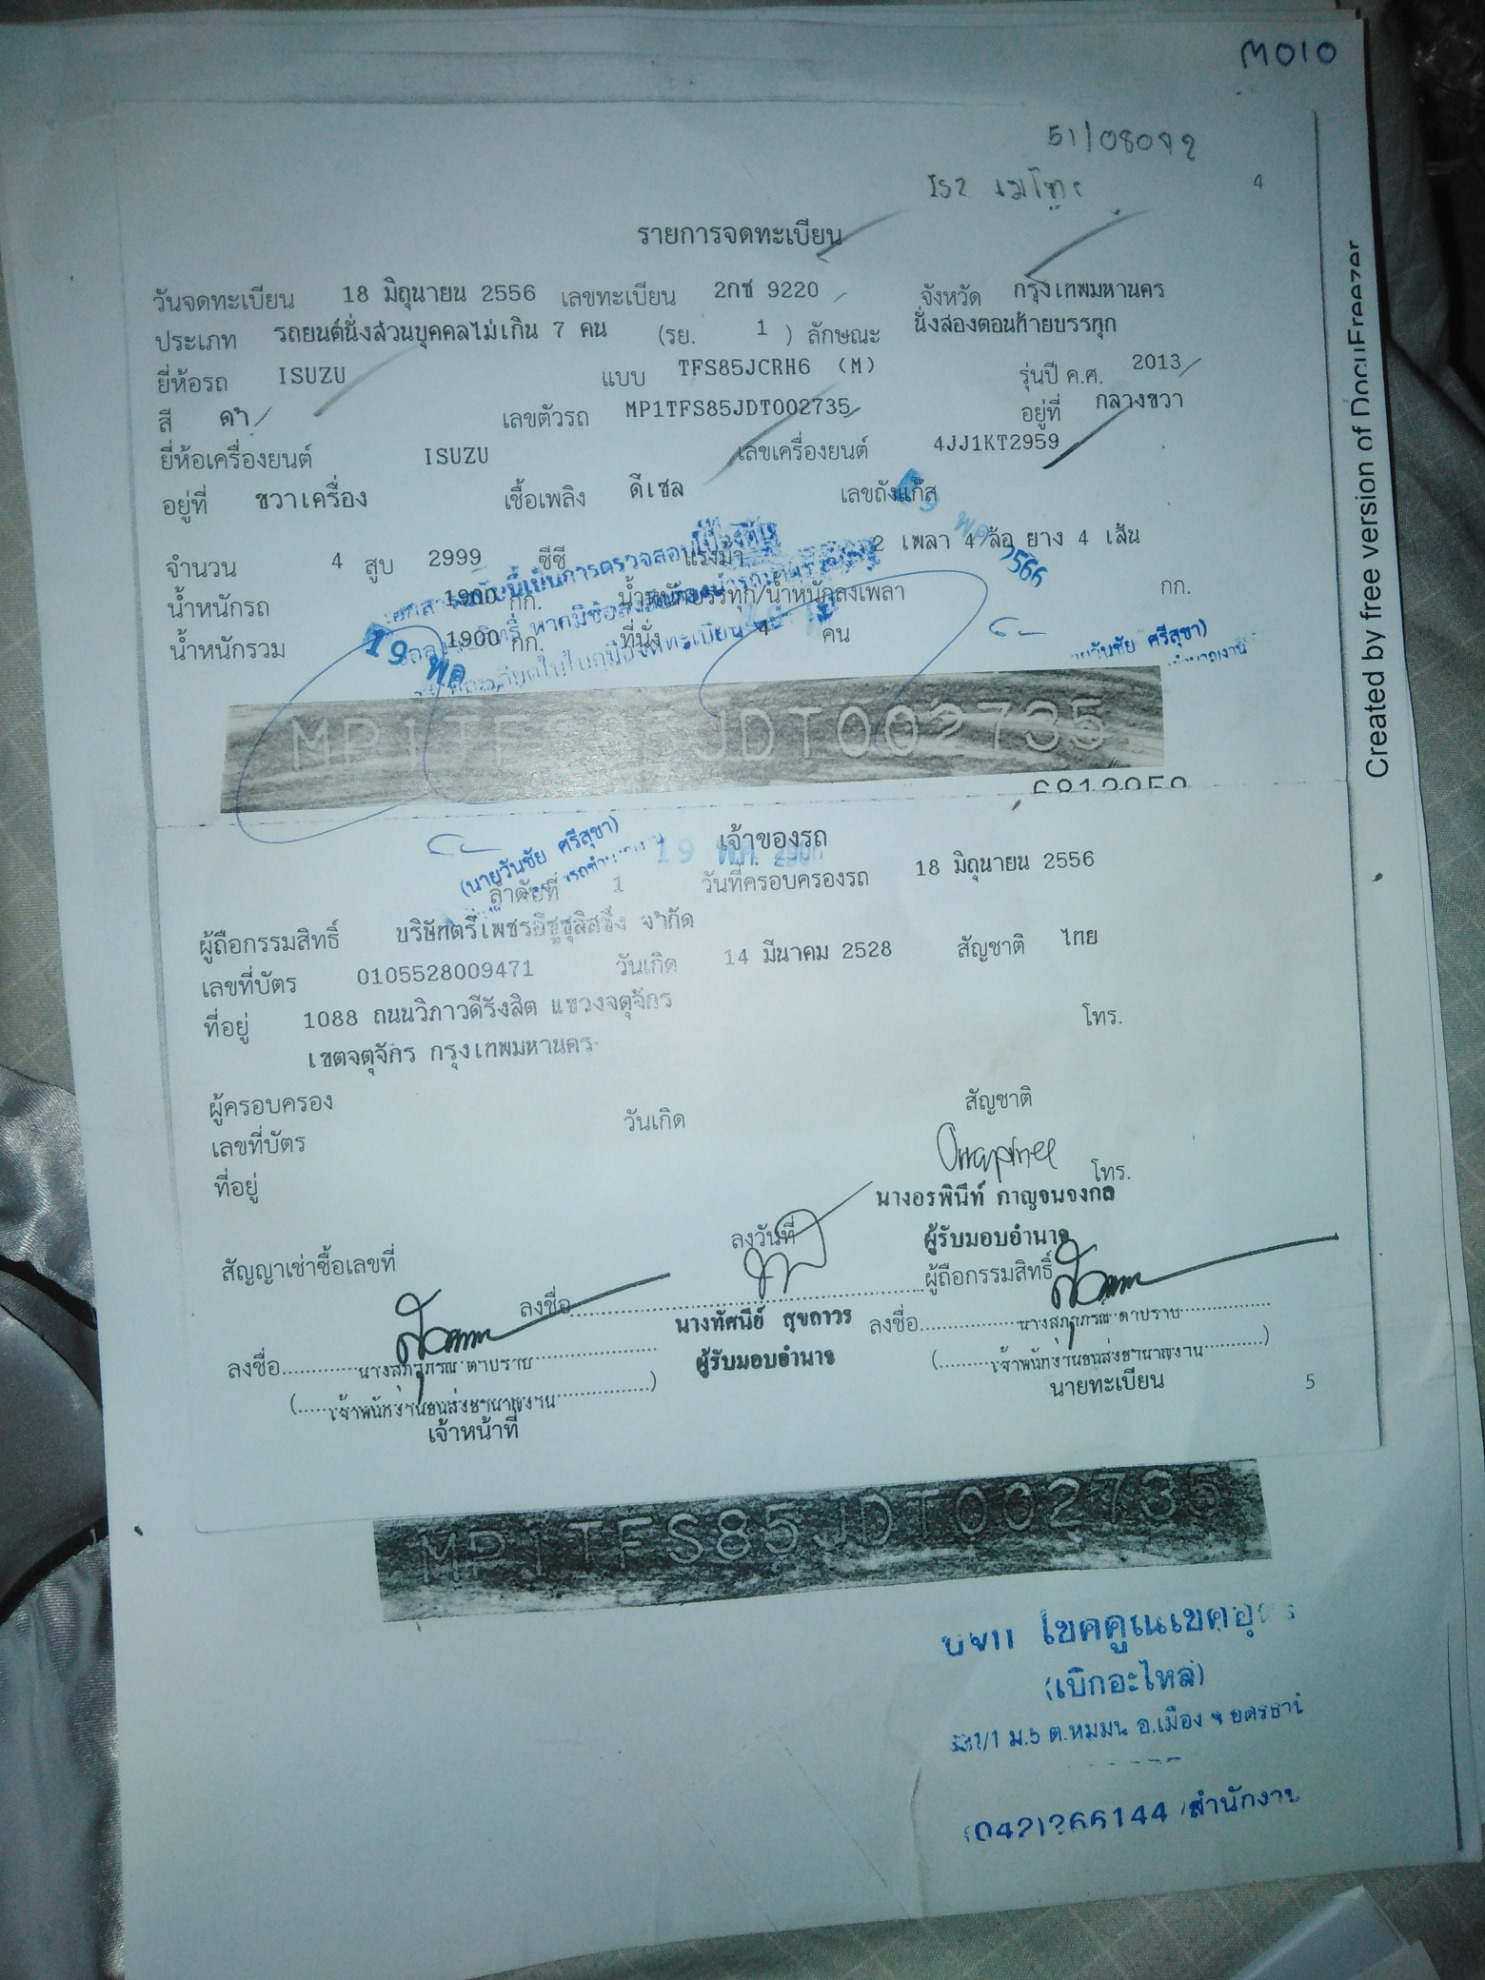 M010
51/08092
4
รายการจดทะเบียน
วันจดทะเบียน 18 มิถุนายน 2556 เลขทะเบียน 2กช 9220 จังหวัด กรุงเทพมหานคร
ประเภท รถยนต์นั่งส่วนบุคคลไม่เกิน 7 คน (รย. 1 ) ลักษณะ นั่งสองตอนท้ายบรรทุก
ยี่ห้อรถ ISUZU แบบ TFS85JCRH6 (M) รุ่นปี ค.ศ. 2013
สี ดำ เลขตัวรถ MP1TFS85JDT002735 อยู่ที่ กลางขวา
ยี่ห้อเครื่องยนต์ ISUZU เลขเครื่องยนต์ 4JJ1KT2959
อยู่ที่ ขวาเครื่อง เชื้อเพลิง ดีเซล เลขถังแก๊ส
จำนวน 4 สูบ 2999 ซีซี แรงม้า 2 เพลา 4 ล้อ ยาง 4 เส้น
น้ำหนักรถ 1900 กก. น้ำหนักบรรทุก/น้ำหนักลงเพลา กก.
น้ำหนักรวม 1900 กก. ที่นั่ง 4 คน
19 พค
MP1TFS85JDT002735
เจ้าของรถ
(นายวันชัย ศรีสุขา)
ลำดับที่ 1 วันที่ครอบครองรถ 18 มิถุนายน 2556
ผู้ถือกรรมสิทธิ์ บริษัทตรีเพชรอีซูซุลิสซิ่ง จำกัด
เลขที่บัตร 0105528009471 วันเกิด 14 มีนาคม 2528 สัญชาติ ไทย
ที่อยู่ 1088 ถนนวิภาวดีรังสิต แขวงจตุจักร โทร.
เขตจตุจักร กรุงเทพมหานคร
ผู้ครอบครอง
เลขที่บัตร วันเกิด สัญชาติ
ที่อยู่ โทร.
นางอรพินีท์ กาญจนจงกล
ผู้รับมอบอำนาจ
สัญญาเช่าซื้อเลขที่ ลงวันที่ ผู้ถือกรรมสิทธิ์
ลงชื่อ
นางทัศนีย์ สุขถาวร
ผู้รับมอบอำนาจ
ลงชื่อ นางสุภาภรณ์ ตาปราบ
(เจ้าพนักงานขนส่งชำนาญงาน)
เจ้าหน้าที่
ลงชื่อ นางสุภาภรณ์ ตาปราบ
(เจ้าพนักงานขนส่งชำนาญงาน)
นายทะเบียน
5
MP1TFS85JDT002735
(เบิกอะไหล่)
ม.5 ต.หมูม่น อ.เมือง จ.อุดรธานี
(042)266144 สำนักงาน
Created by free version of DocuFreezer